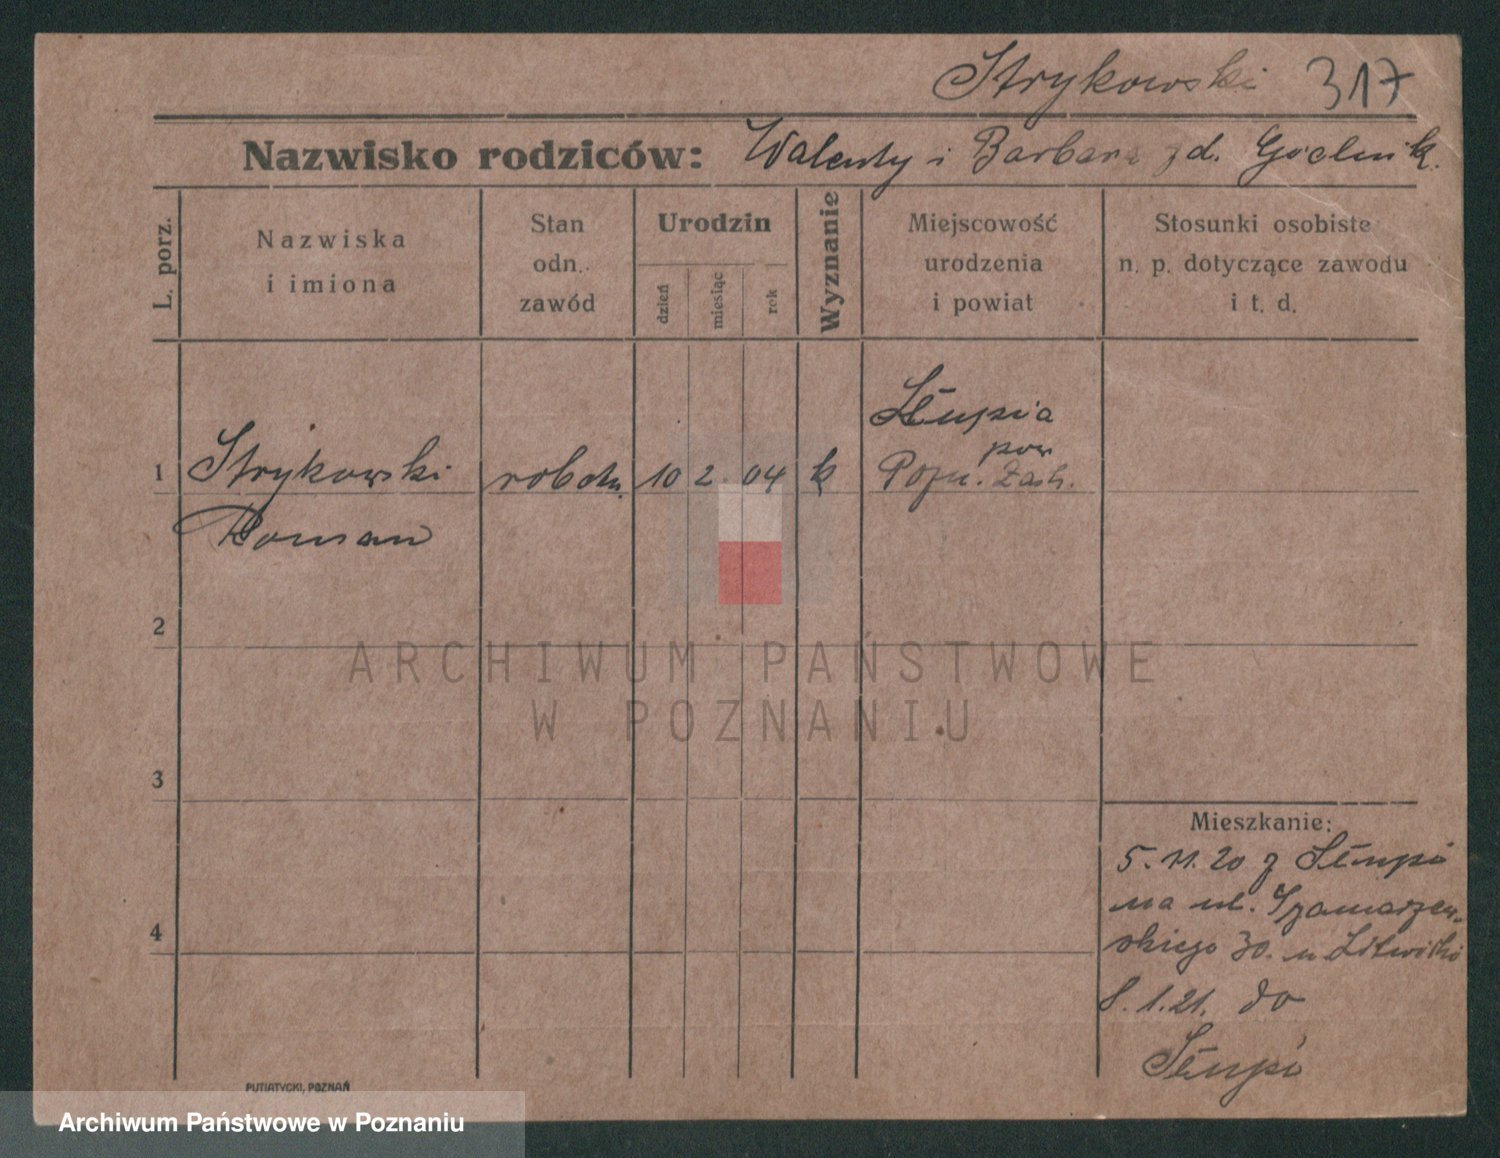 Strykowski 317
Nazwisko rodziców: Walenty i Barbara zd. Gielnik.
L. porz.
Nazwiska
i imiona
Stan
odn.
zawód
Urodzin
dzień
miesiąc
rok
Wyznanie
Miejscowość
urodzenia
i powiat
Stosunki osobiste
n. p. dotyczące zawodu
i t. d.
1 Strykowski robotn. 10 2. 04 k
Roman
Słupia
pow
Pozn. Zach.
2
ARCHIWUM PAŃSTWOWE
W POZNANIU
3
4
Mieszkanie:
5.11.20 z Słupi
na ul. Szamarzew-
skiego 30. u
8.1.21. do
Słupi
PUTIATYCKI, POZNAŃ
Archiwum Państwowe w Poznaniu